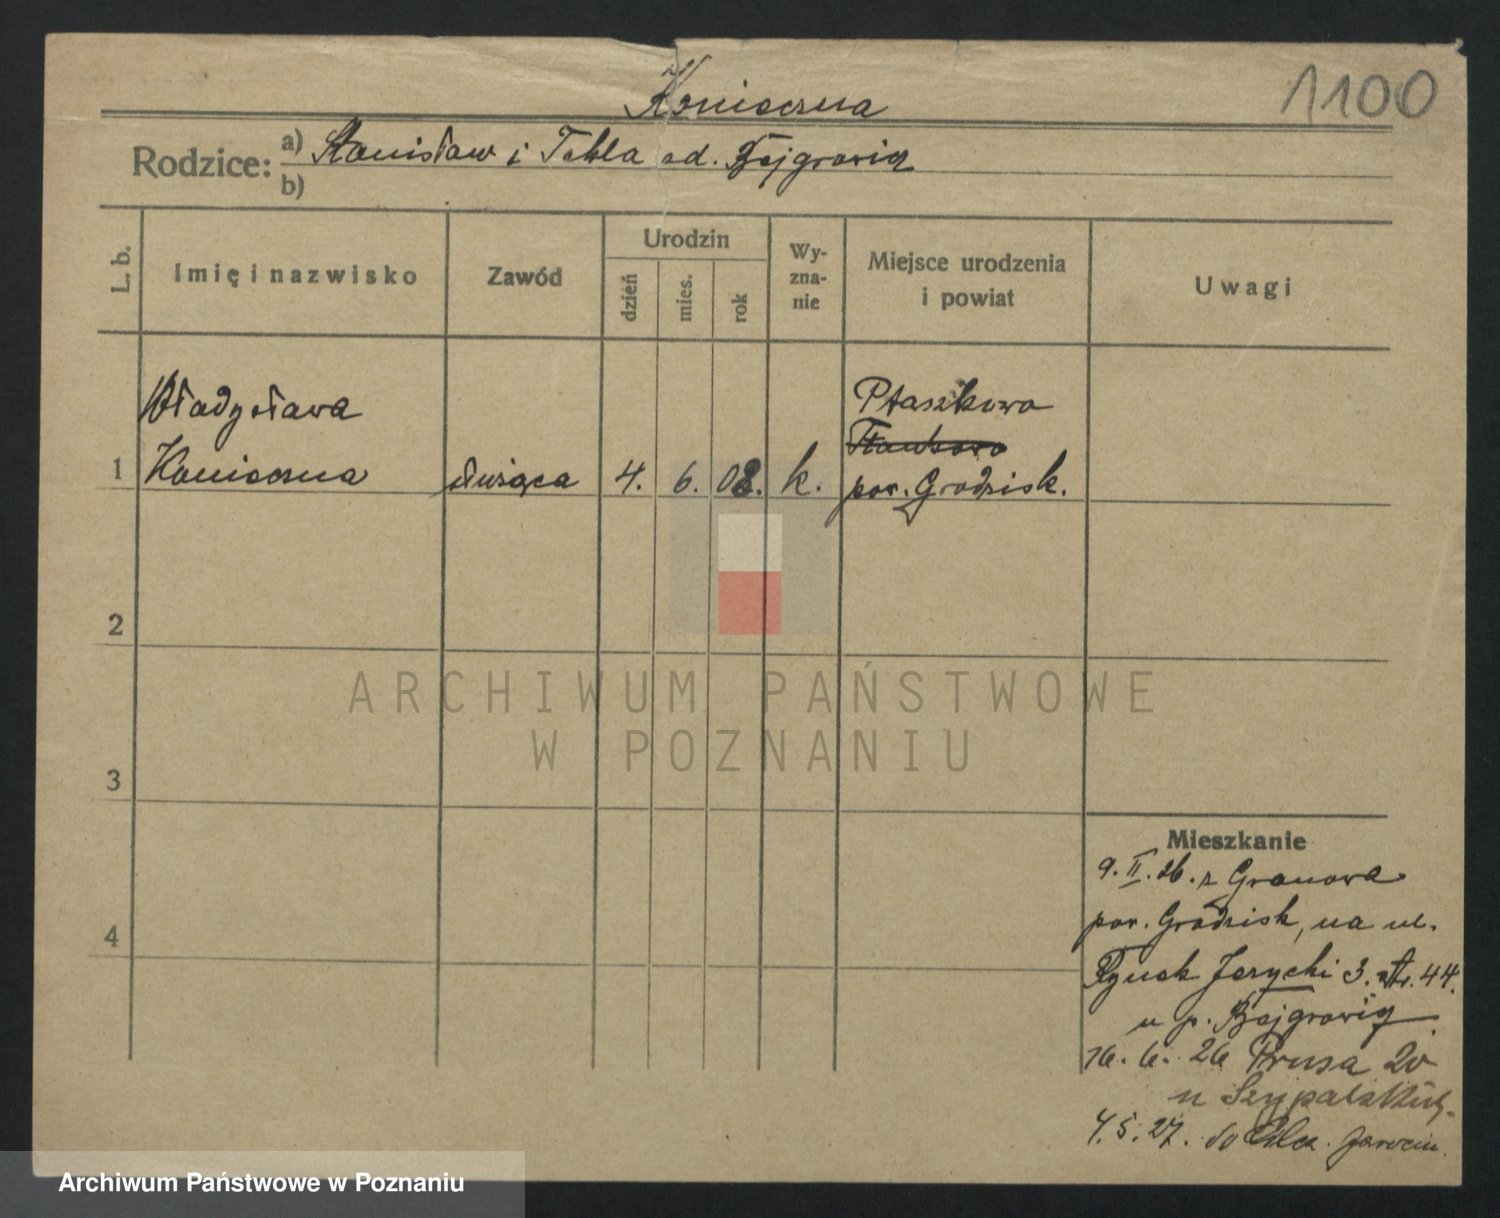 Konieczna
1100
Rodzice: a) Stanisław i Tekla od. Bajgrowicz
b)
L. b.
Imię i nazwisko
Zawód
Urodzin
dzień
mies.
rok
Wy-
zna-
nie
Miejsce urodzenia
i powiat
Uwagi
Władysława
Ptaszkowo
1 Konieczna służąca 4. 6. 08. k. pow. Grodzisk.
2
ARCHIWUM PAŃSTWOWE
W POZNANIU
3
4
Mieszkanie
9. II. 26. z Granowa
pow. Grodzisk, na ul.
Rynek Jeżycki 3. 44.
u p. Bajgrowicz
16. 6. 26 Prusa 20
u Szypalskich
4. 5. 27. do Jarocin.
Archiwum Państwowe w Poznaniu